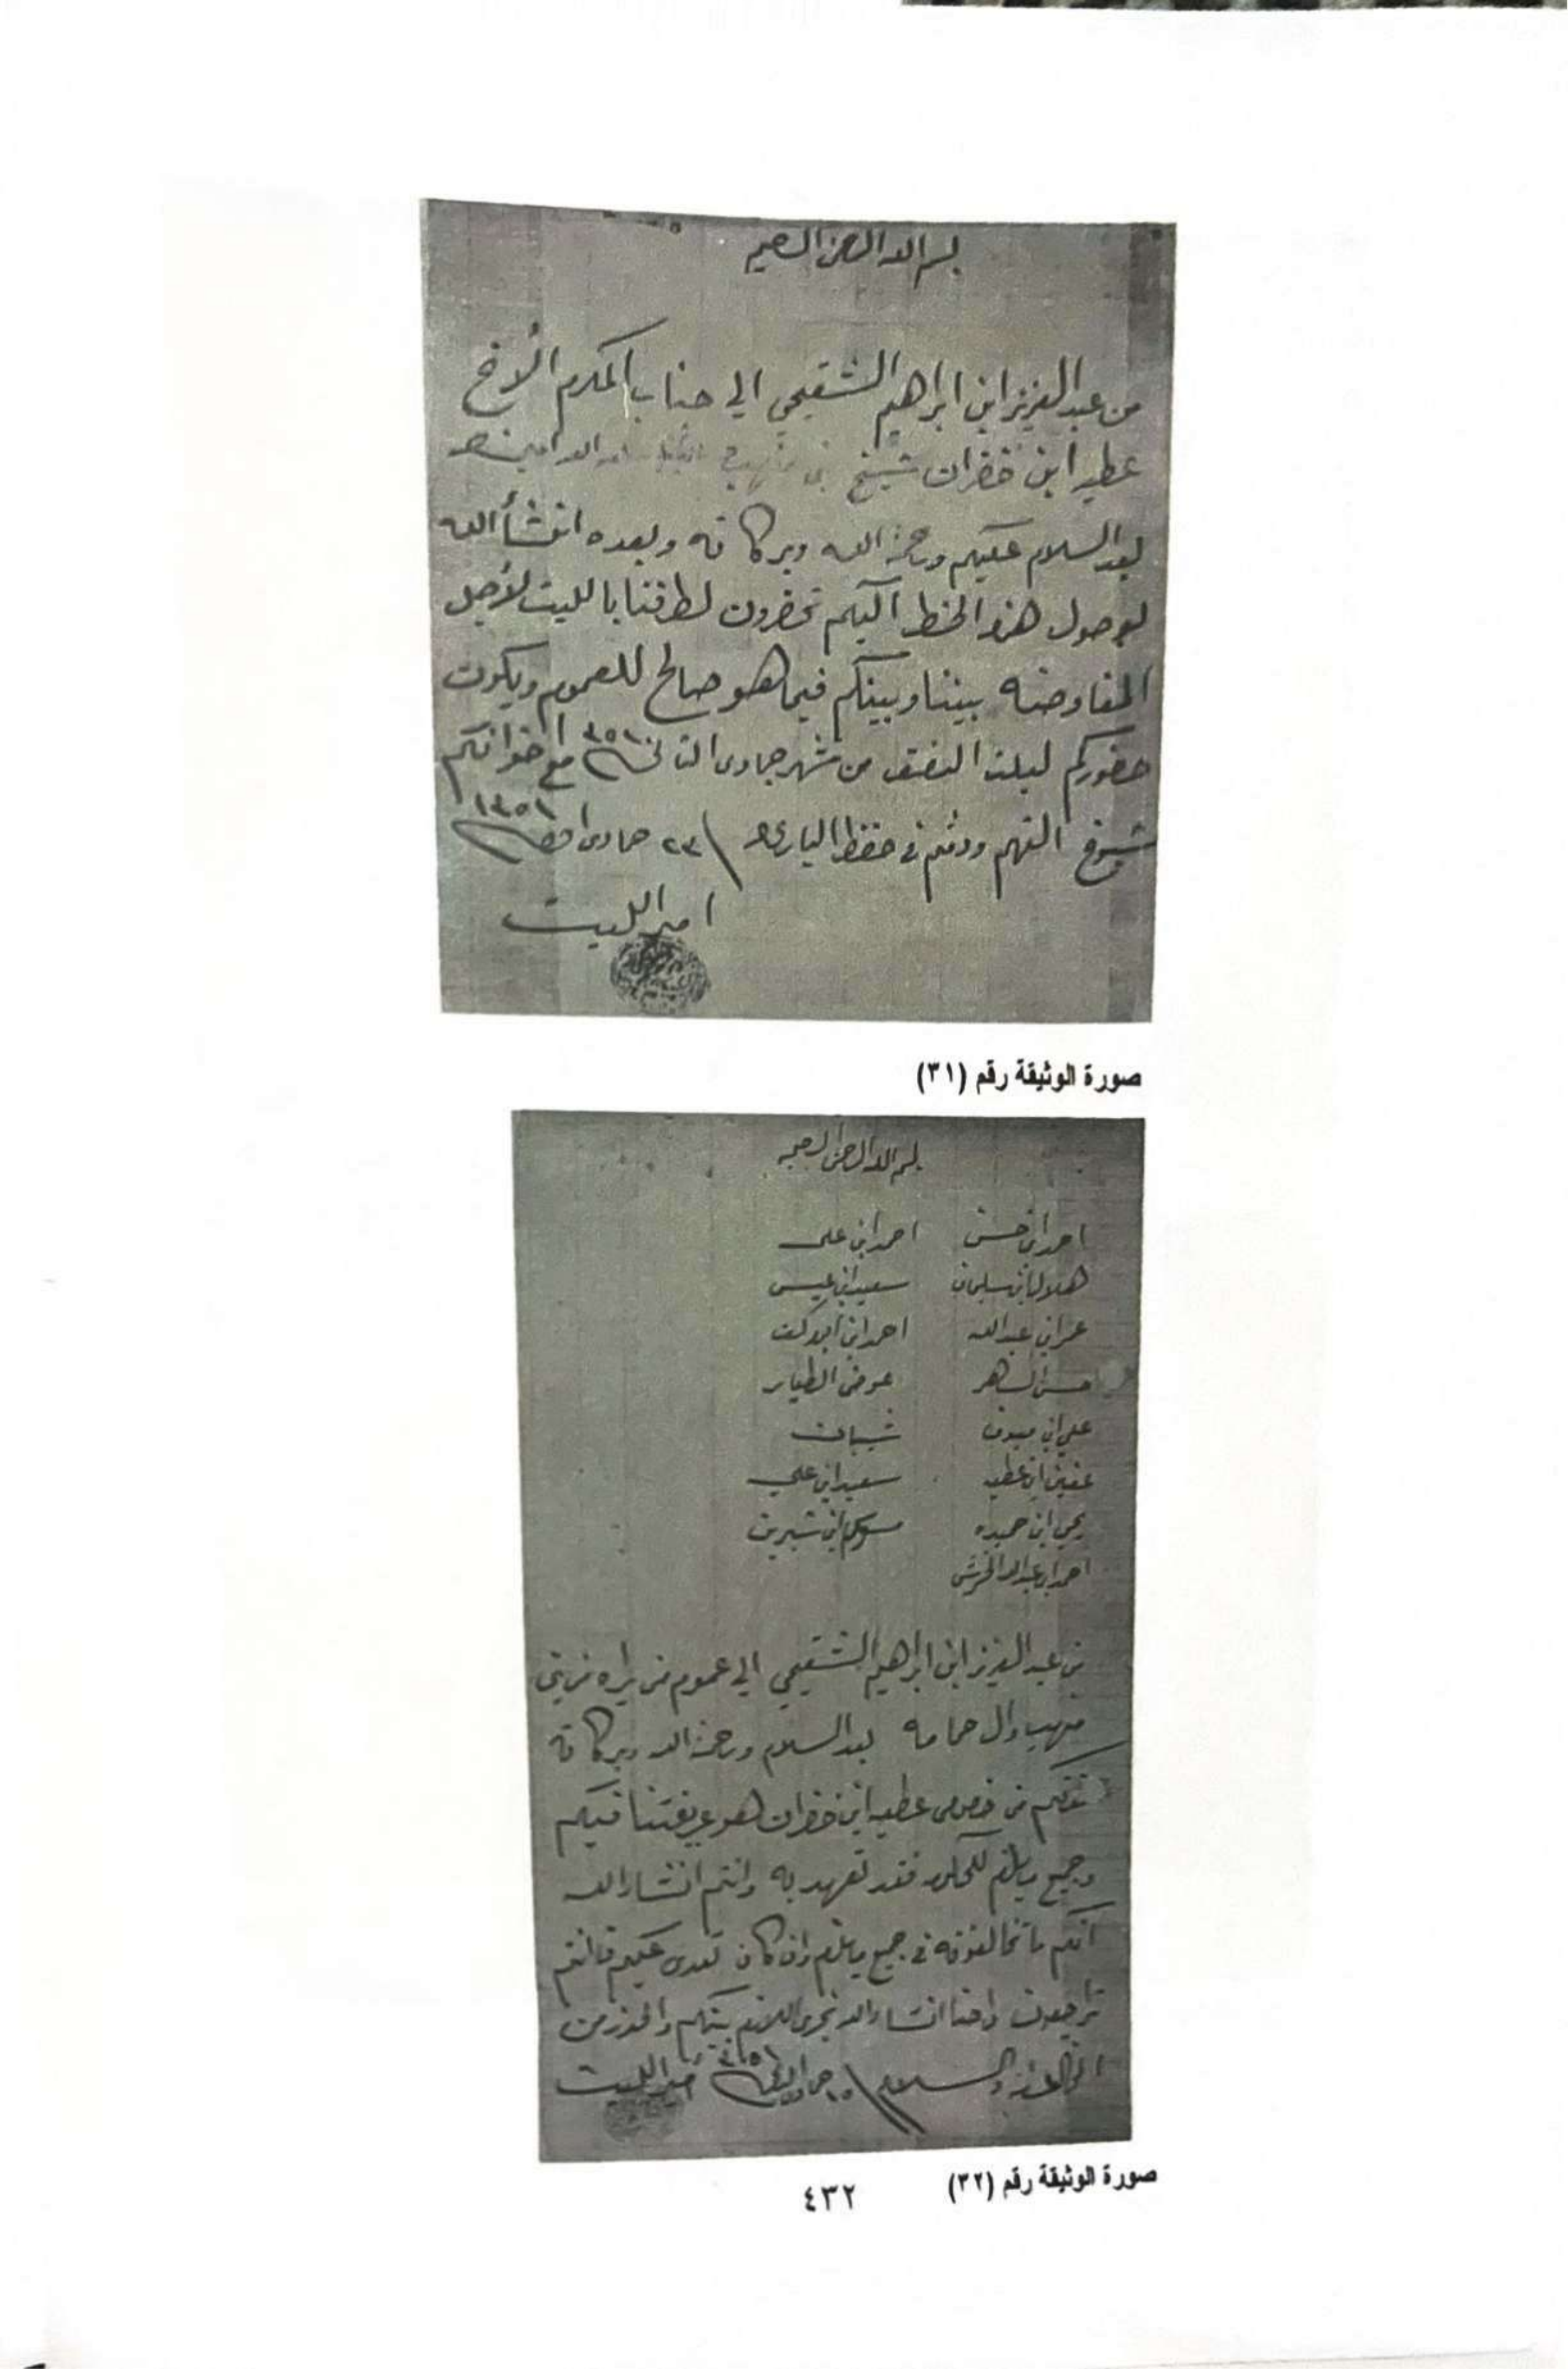 بسم الله الرحمن الرحيم
من عبدالعزيز ابن ابراهيم الشقيحي الي جناب المكرم الأخ
عطيه ابن خضران شيخ بني
بعد السلام عليكم ورحمة الله وبركاته وبعده انشأ الله
بوصول هذا الخط اليكم تحضرون لطرفنا بالليث لأجل
المفاوضه بيننا وبينكم فيما هو صالح للعموم ويكون
حضوركم ليلت النصف من شهر جمادى الثاني ١٣٥١ مع اخوانكم
شيوخ الفهم ودمتم في حفظ الباري ٢٣ جمادى ١٣٥١
امير الليث
صورة الوثيقة رقم (٣١)
بسم الله الرحمن الرحيم
احمد ابن حسن احمد ابن علي
هلال ابن سليمان سعيد ابن عيسى
عمر ابن عبدالله احمد ابن
حسن عوض الطيار
علي ابن شيبان
ابن عطيه سعيد ابن علي
يحي ابن حميده ابن
احمد ابن عبدالله
من عبدالعزيز ابن ابراهيم الشقيحي الي عموم من يراه من بني
وال حمامه بعد السلام ورحمة الله وبركاته
من خصوص عطيه ابن خضران هو عريفتنا فيكم
وجميع ما يلزم فقد تعهد به وانتم انشاء الله
انكم ما تخالفونه في جميع ما يلزم وان كان تعدى عليكم فانتم
تراجعون واحنا انشاء الله نجري اللازم بينكم والحذر من
المخالفة والسلام ١٥ ١٣٥١ امير الليث
صورة الوثيقة رقم (٣٢)
٤٣٢